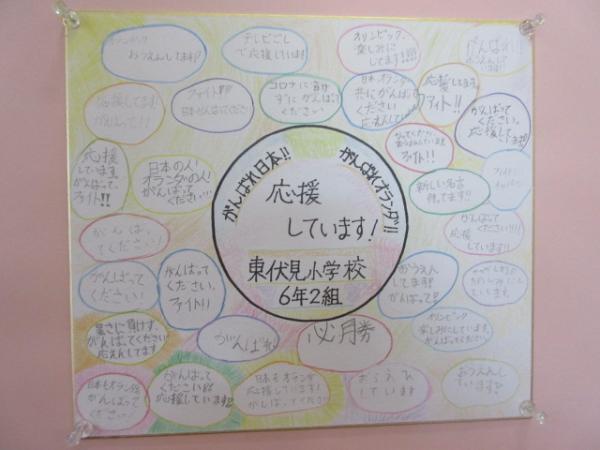 がんばれ日本!!
がんばれオランダ!!
応援
しています!
東伏見小学校
6年2組
おうえんしてます!
テレビごし
で応援しています!
オリンピック、
楽しみに
してます!!!!
がんばれ!!
応援してます!
がんばって!!
ファイト!!!
日本がんばってください
コロナに負け
ずにがんばって
ください
日本、オランダ
共にがんばって
ください
応えんしてい
応援してます。
ファイト!!
がんばって
ください。
応援して
ます!
応援
しています。
がんばって、
ファイト!!
日本の人!
オランダの人!
がんばって
ください…!
ファイト!!
新しい名言
待ってます!!
がんば、
てください!
がんばって
ください!!!!
応援
しています!!
がんばって
ください!
がんばって
ください。
ファイト!!
おうえん
してます!!
がんばって!!
暑さに負けず、
がんばってください
応えんしてます
がんばれ
必月券
オリンピック
楽しみにしています。
がんばってください。
日本もオランダも
がんばって
ください!
がんばって
ください!!
応援しています!!
日本もオランダも
応援しています!
がんばってください
おうえん
しています
おうえんし
ています!!